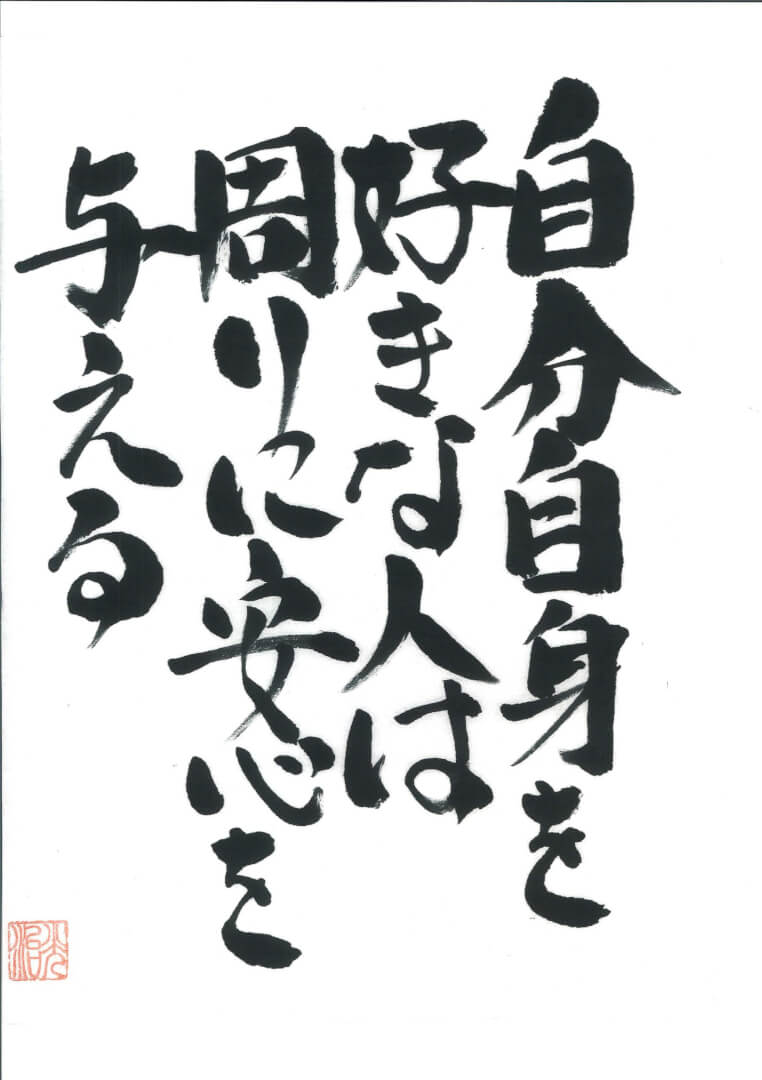 自分自身を
好きな人は
周りに安心を
与える